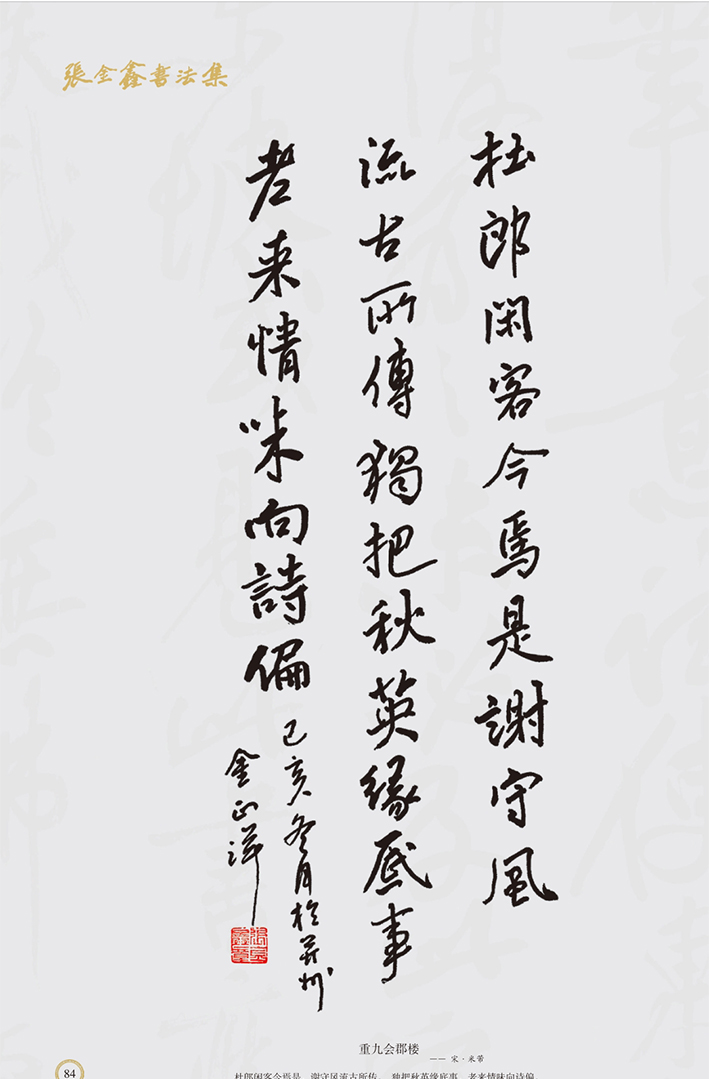 張金鑫書法集
杜郎闲客今焉是謝守風
流古所傳獨把秋英缘底事
老来情味向詩偏
己亥冬月於并州
金正洋
重九会郡楼
—— 宋·米芾
84
杜郎闲客今焉是，谢守风流古所传。独把秋英缘底事，老来情味向诗偏